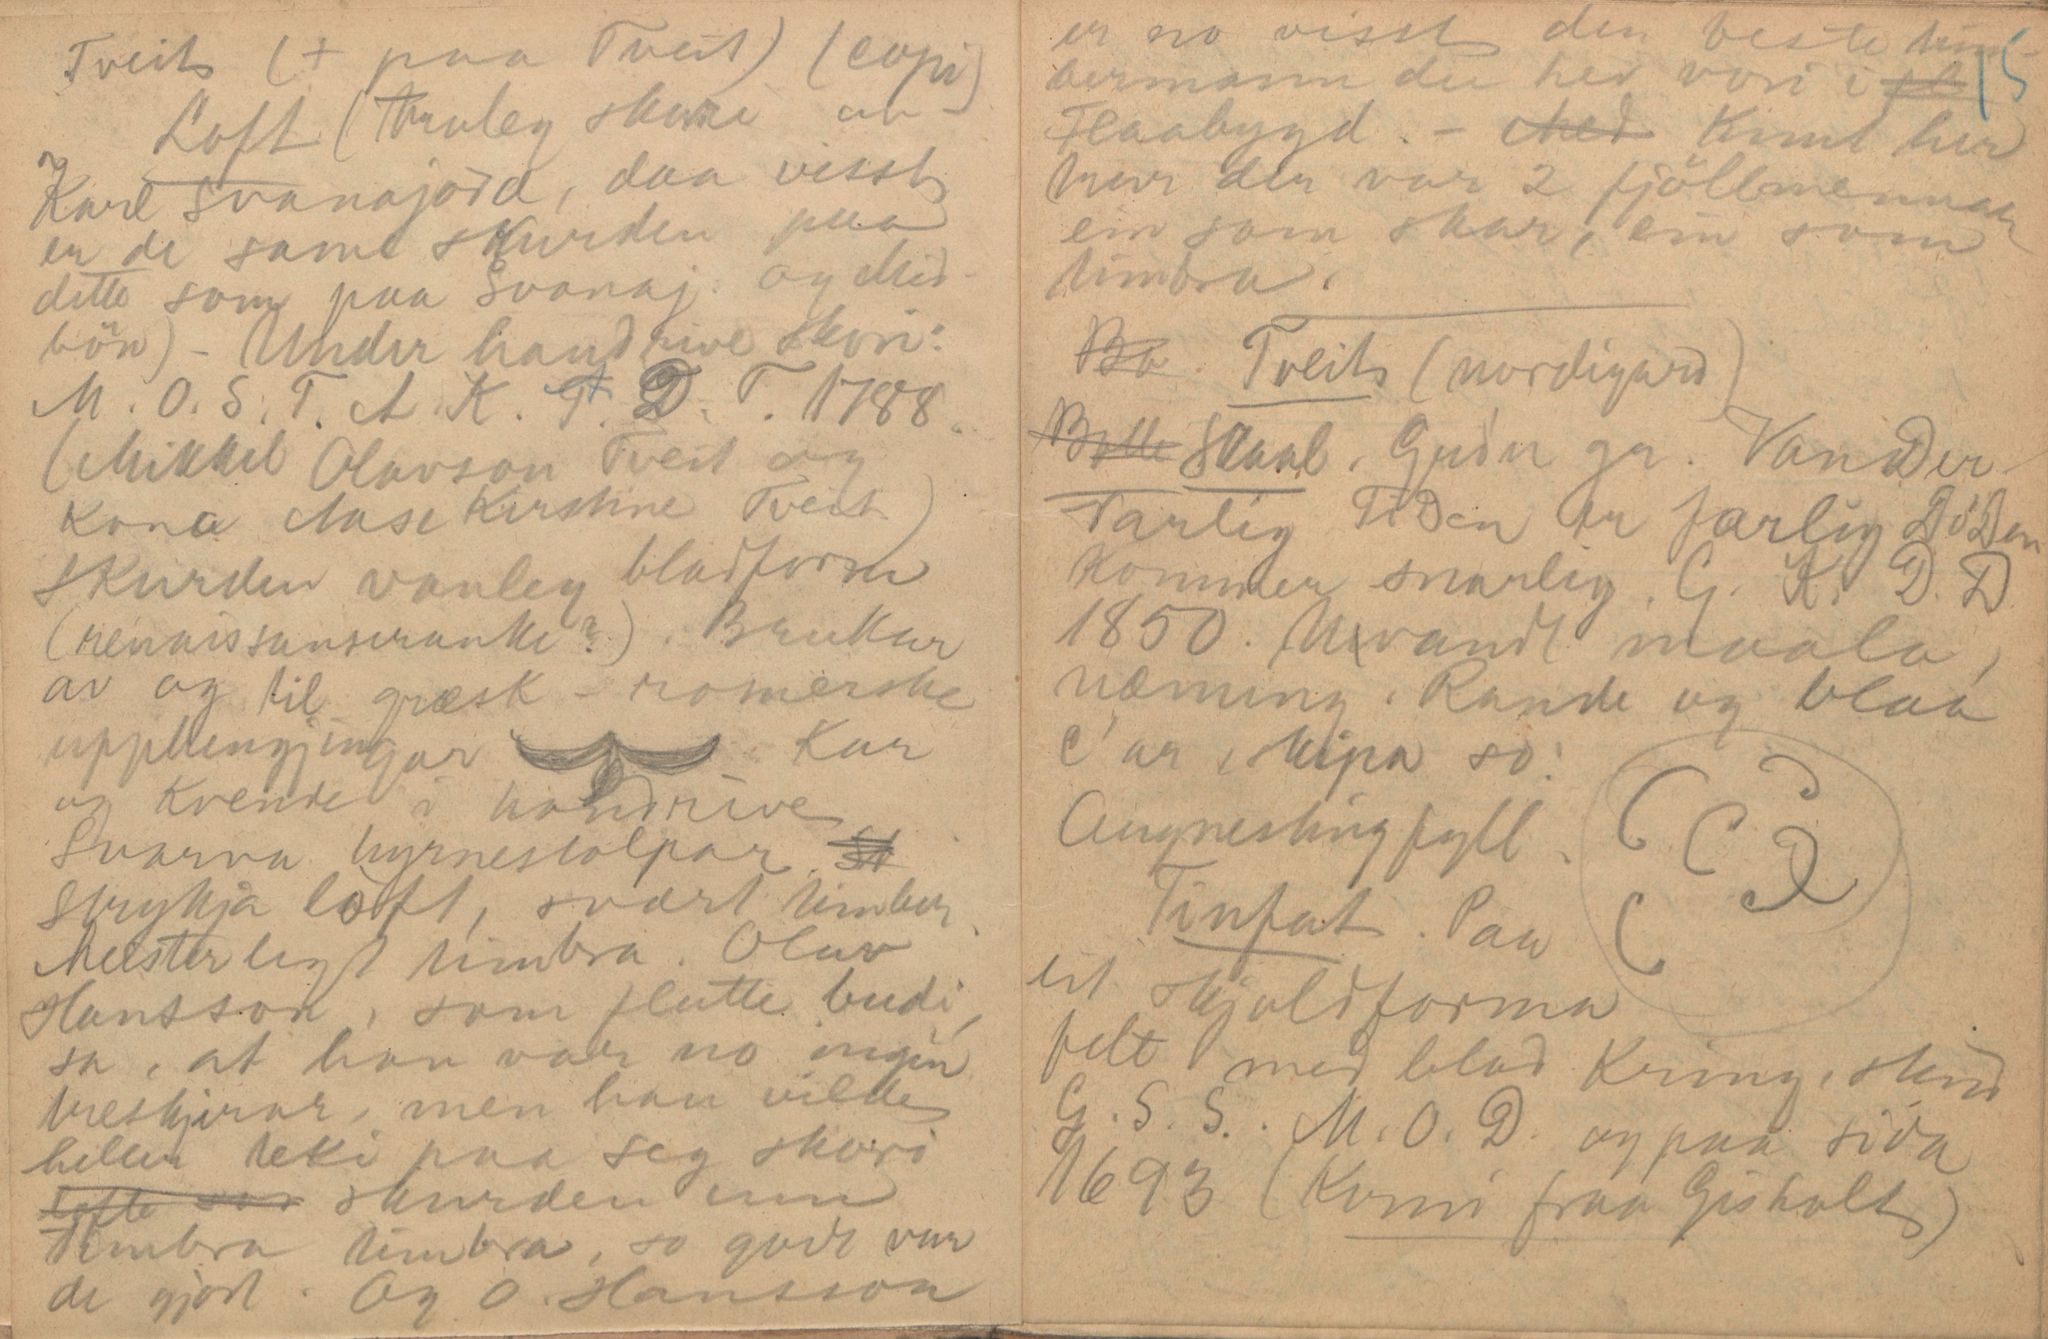 Tveit (+ paa Tveit) (copi)
Loft (truleg skori av
Karl Svanajord, daa visst
er de same skurden paa
dette som paa Svanaj. og Mid-
bön) - Under handrive skori:
M. O. S. T. A. K. T. D. T. 1788.
(Mikkel Olavson Tveit og
Kona Aase Kirstine Tveit)
Skurden vanleg bladform
(renaissanseranke?). Brukar
av og til græsk - romerske
upphengjingar Kar
og Kvende i handrive
Svarva hyrnestolpar St
Strykja loft, svært timber
Meisterlegt timbra. Olav
Hansson, som flutte budi,
sa, at han var no ingin
treskjerar, men han vilde
heller teki paa seg skori
skurden enn
timbra timbra, so godt var
de gjort. Og O. Hansson
er no visst den beste tim-
bermann der hev vori i fl
Flaabygd. - Med Kimt her
trur der var 2 fjöllmennar
ein som skar, ein som
timbra.
15
Bo Tveit (nordigard)
Bolle Skaal. Gudn gr. Vander
Varlig Tiden er farlig Döden
Kommer snarlig. G. K. D. D
1850. Utvandt maala,
næming. Rande og blaa
C'ar, skipa so:
Augnestingfyll.
Tinfat. Paa
eit skjoldforma
felt med blad kring, stend
G. S. S. M. O. D. og paa sida
1693 (Kvmi fraa Gisholt)